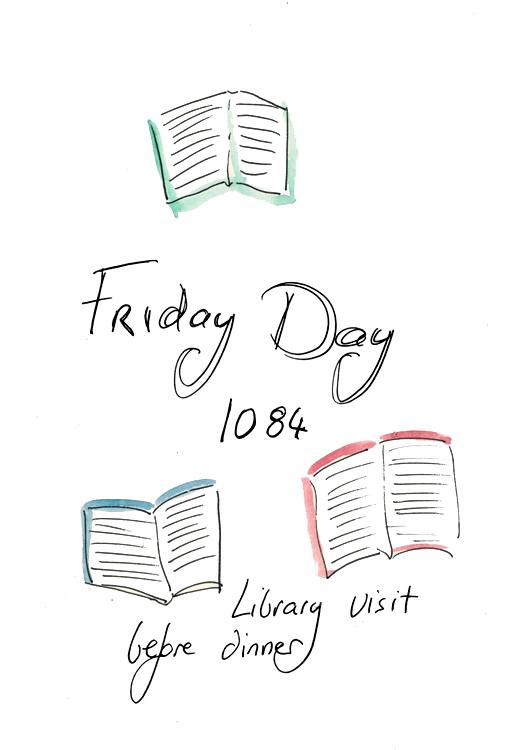 Friday Day
1084
Library visit
before dinner